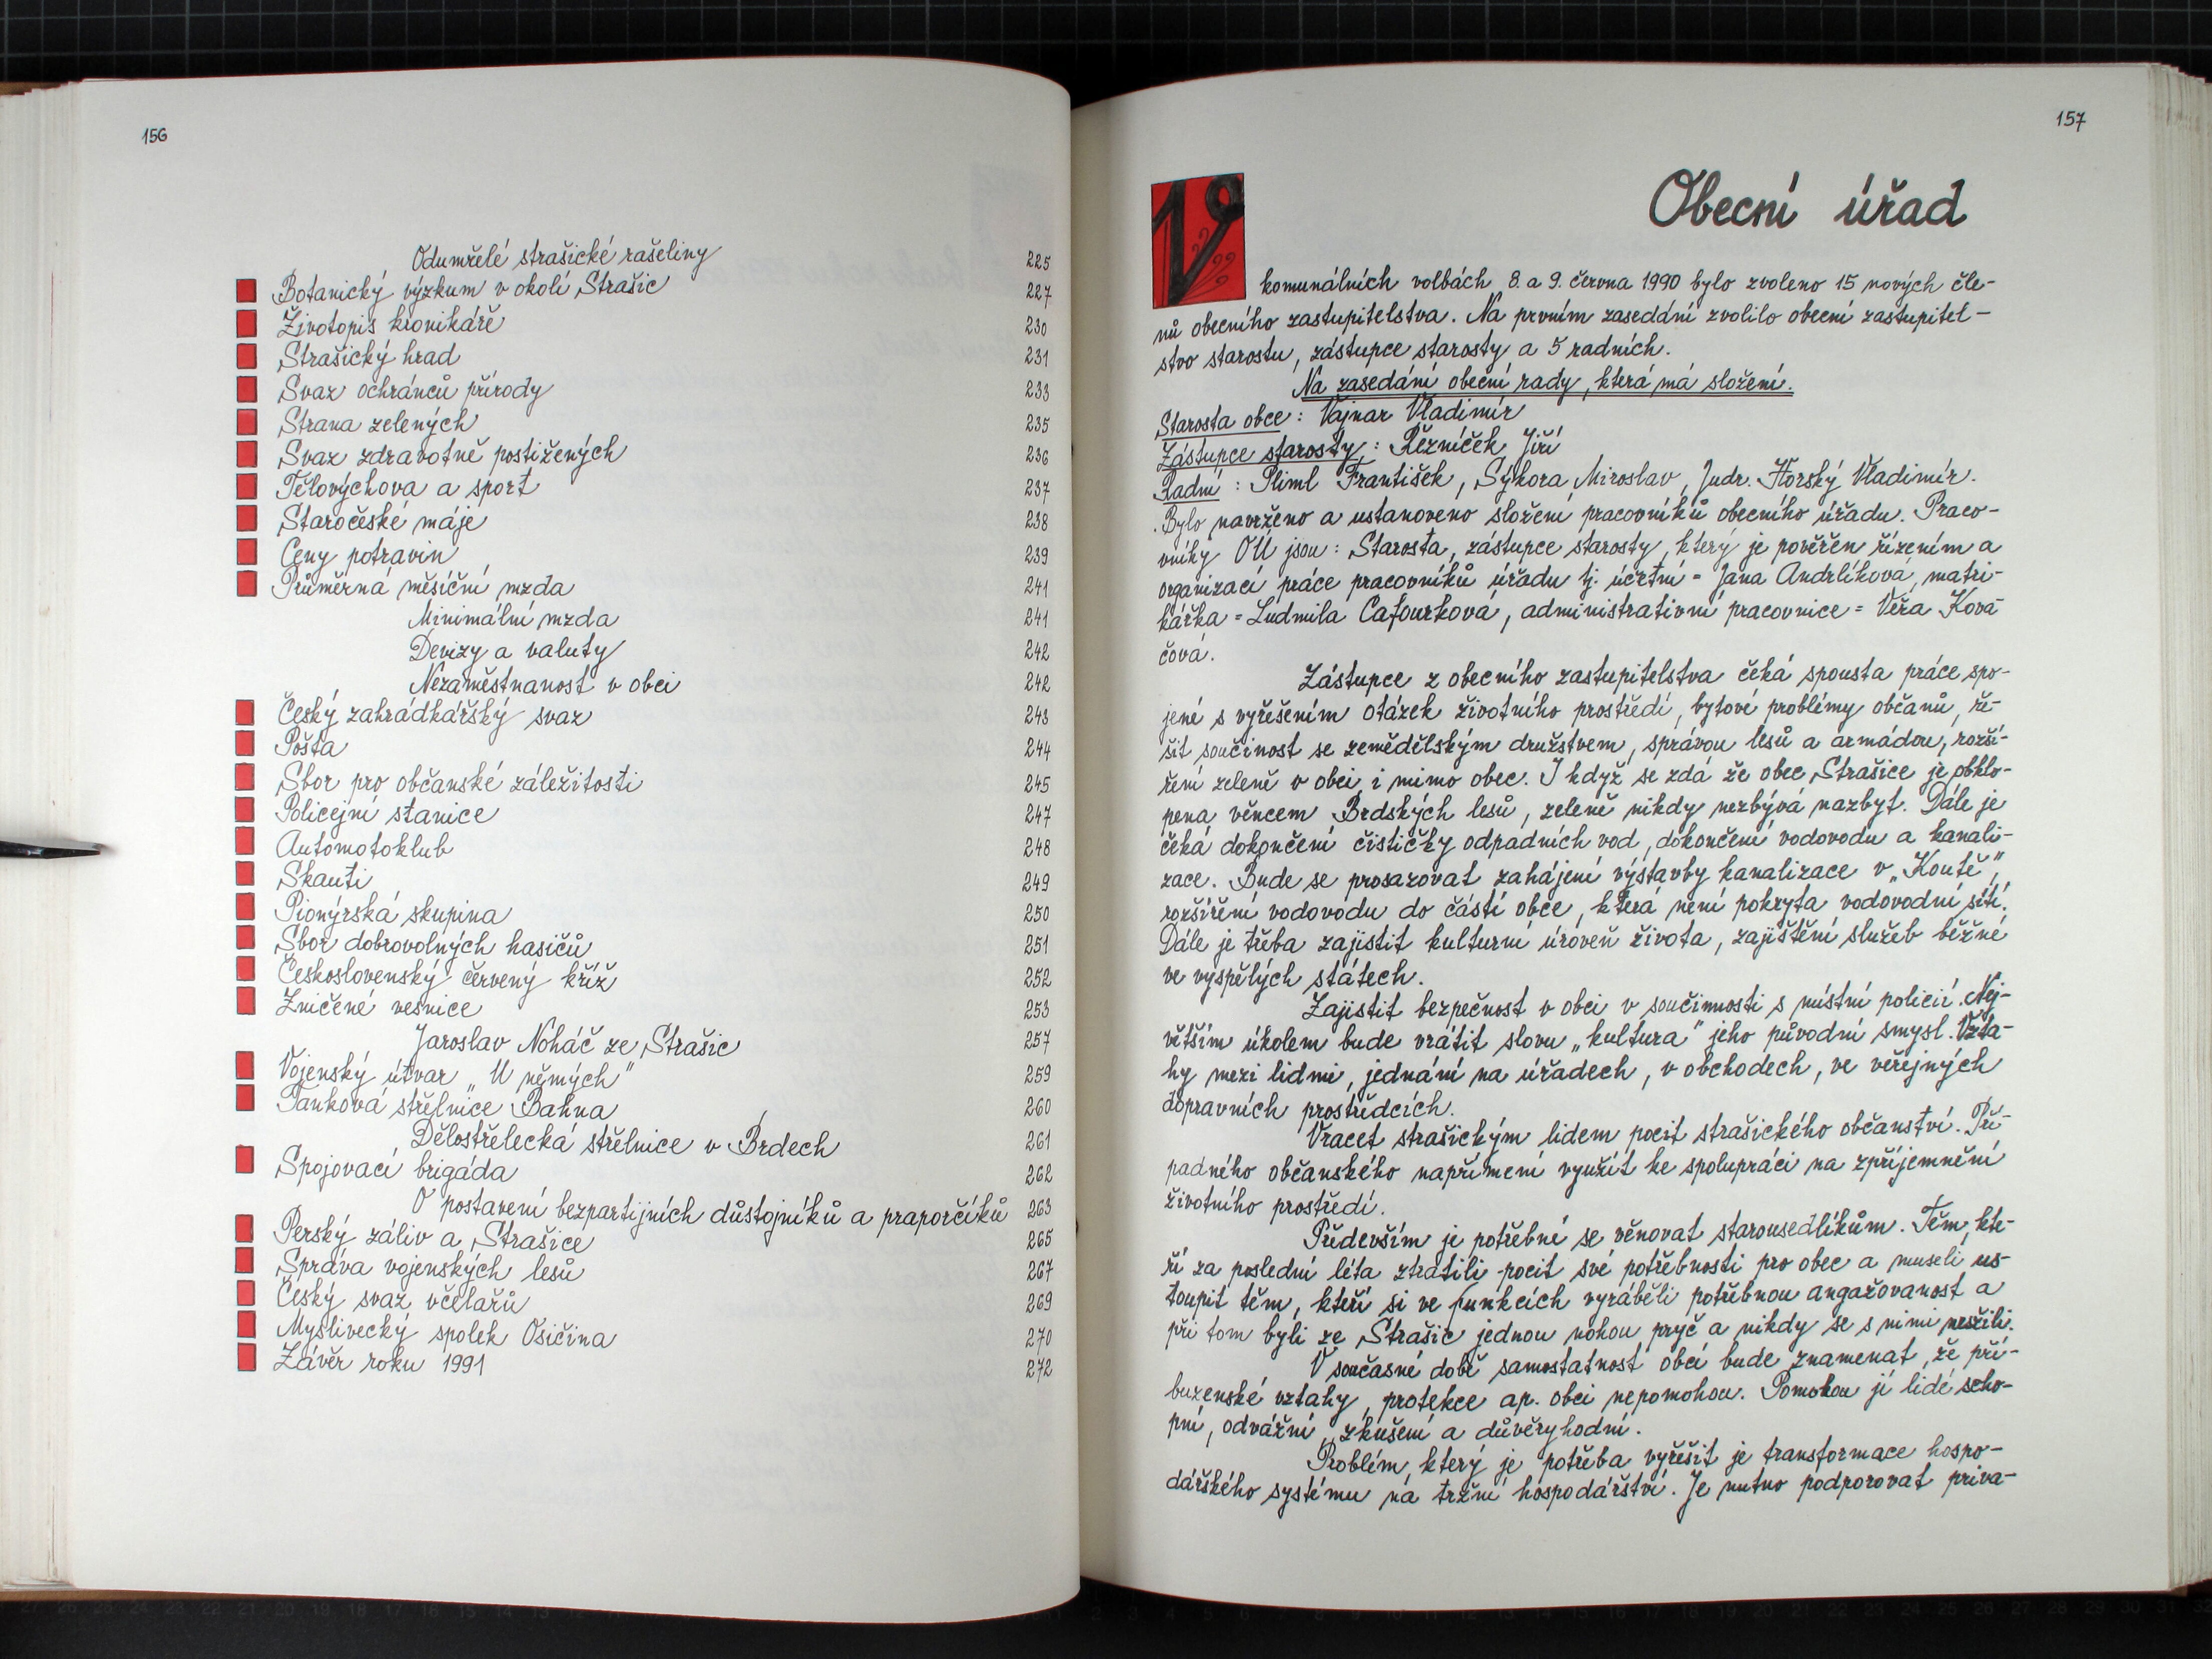 156
Odumřelé strašické rašeliny 225
Botanický výzkum v okolí Strašic 227
Životopis kronikáře 230
Strašický hrad 231
Svaz ochránců přírody 233
Strana zelených 235
Svaz zdravotně postižených 236
Tělovýchova a sport 237
Staročeské máje 238
Ceny potravin 239
Průměrná měsíční mzda 241
Minimální mzda 241
Devizy a valuty 242
Nezaměstnanost v obci 242
Český zahrádkářský svaz 243
Pošta 244
Sbor pro občanské záležitosti 245
Policejní stanice 247
Automotoklub 248
Skauti 249
Pionýrská skupina 250
Sbor dobrovolných hasičů 251
Československý červený kříž 252
Zničené vesnice 253
Jaroslav Noháč ze Strašic 257
Vojenský útvar „U němých" 259
Tanková střelnice Bahna 260
Dělostřelecká střelnice v Brdech 261
Spojovací brigáda 262
O postavení bezpartijních důstojníků a praporčíků 263
Perský záliv a Strašice 265
Správa vojenských lesů 267
Český svaz včelařů 269
Myslivecký spolek Osičina 270
Závěr roku 1991 272
157
Obecní úřad
V komunálních volbách 8. a 9. června 1990 bylo zvoleno 15 nových čle-
nů obecního zastupitelstva. Na prvním zasedání zvolilo obecní zastupitel-
stvo starostu, zástupce starosty a 5 radních.
Na zasedání obecní rady, která má složení.
Starosta obce: Vajnar Vladimír
Zástupce starosty: Řezníček Jiří
Radní: Pliml František, Sýkora Miroslav, Judr. Horský Vladimír.
Bylo navrženo a ustanoveno složení pracovníků obecního úřadu. Praco-
vníky OÚ jsou: Starosta, zástupce starosty, který je pověřen řízením a
organizací práce pracovníků úřadu tj. účetní = Jana Andrlíková, matri-
kářka = Ludmila Cafourková, administrativní pracovnice = Věra Ková
čová.
Zástupce z obecního zastupitelstva čeká spousta práce spo-
jené s vyřešením otázek životního prostředí, bytové problémy občanů, ře-
šit součinost se zemědělským družstvem, správou lesů a armádou, rozší-
ření zeleně v obci i mimo obec. I když se zdá že obec Strašice je obklo-
pena věncem Brdských lesů, zeleně nikdy nezbývá nazbyt. Dále je
čeká dokončení čističky odpadních vod, dokončení vodovodu a kanali-
zace. Bude se prosazovat zahájení výstavby kanalizace v „Koutě",
rozšíření vodovodu do části obce, která není pokryta vodovodní sítí.
Dále je třeba zajistit kulturní úroveň života, zajištění služeb běžné
ve vyspělých státech.
Zajistit bezpečnost v obci v součinnosti s místní policií. Nej-
větším úkolem bude vrátit slovu „kultura" jeho původní smysl. Vzta-
hy mezi lidmi, jednání na úřadech, v obchodech, ve veřejných
dopravních prostředcích.
Vracet strašickým lidem pocit strašického občanství. Pří-
padného občanského napřímení využít ke spolupráci na zpříjemnění
životního prostředí.
Především je potřebné se věnovat starousedlíkům. Těm, kte-
ří za poslední léta ztratili pocit své potřebnosti pro obec a museli us-
toupit těm, kteří si ve funkcích vyráběli potřebnou angažovanost a
při tom byli ze Strašic jednou nohou pryč a nikdy se s nimi nesžili.
V současné době samostatnost obcí bude znamenat, že pří-
buzenské vztahy, protekce ap. obci nepomohou. Pomohou jí lidé scho-
pní, odvážní, zkušení a důvěryhodní.
Problém, který je potřeba vyřešit je transformace hospo-
dářského systému na tržní hospodářství. Je nutno podporovat priva-